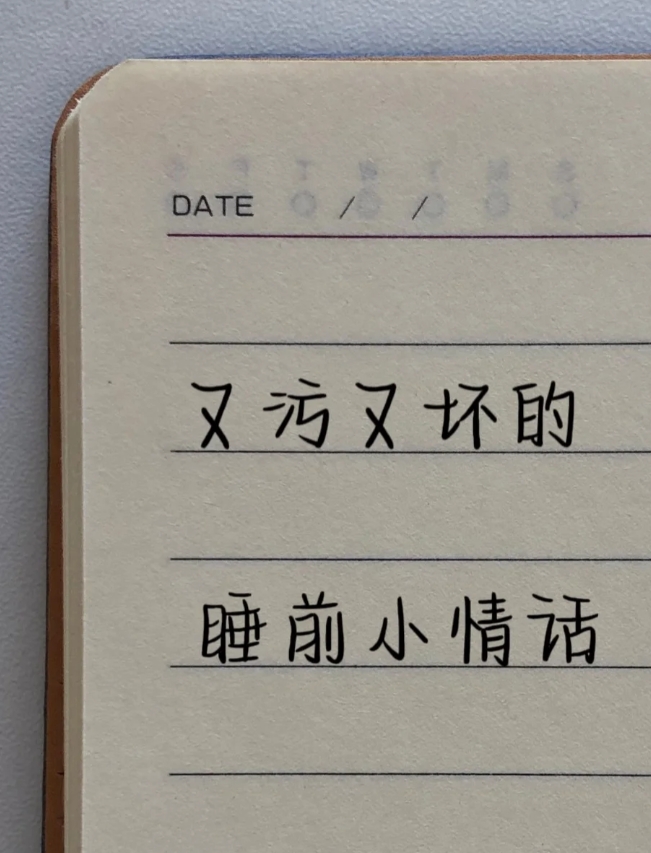 DATE / /
又污又坏的
睡前小情话